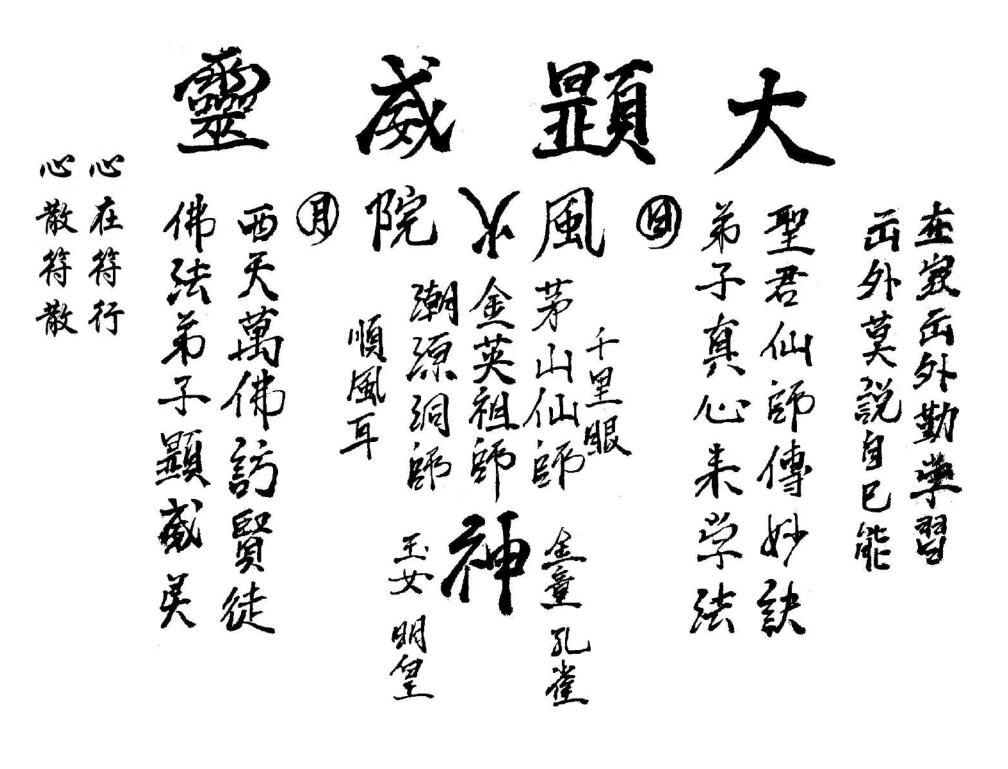 大顯威靈
在家出外勤學習
出外莫說自己能
聖君仙師傳妙訣
弟子真心来学法
日
風火院
月
千里眼
茅山仙師
金英祖師
潮源洞師
順風耳
神
金童 孔雀
玉女 明皇
西天萬佛訪賢徒
佛法弟子顯威灵
心在符行
心散符散